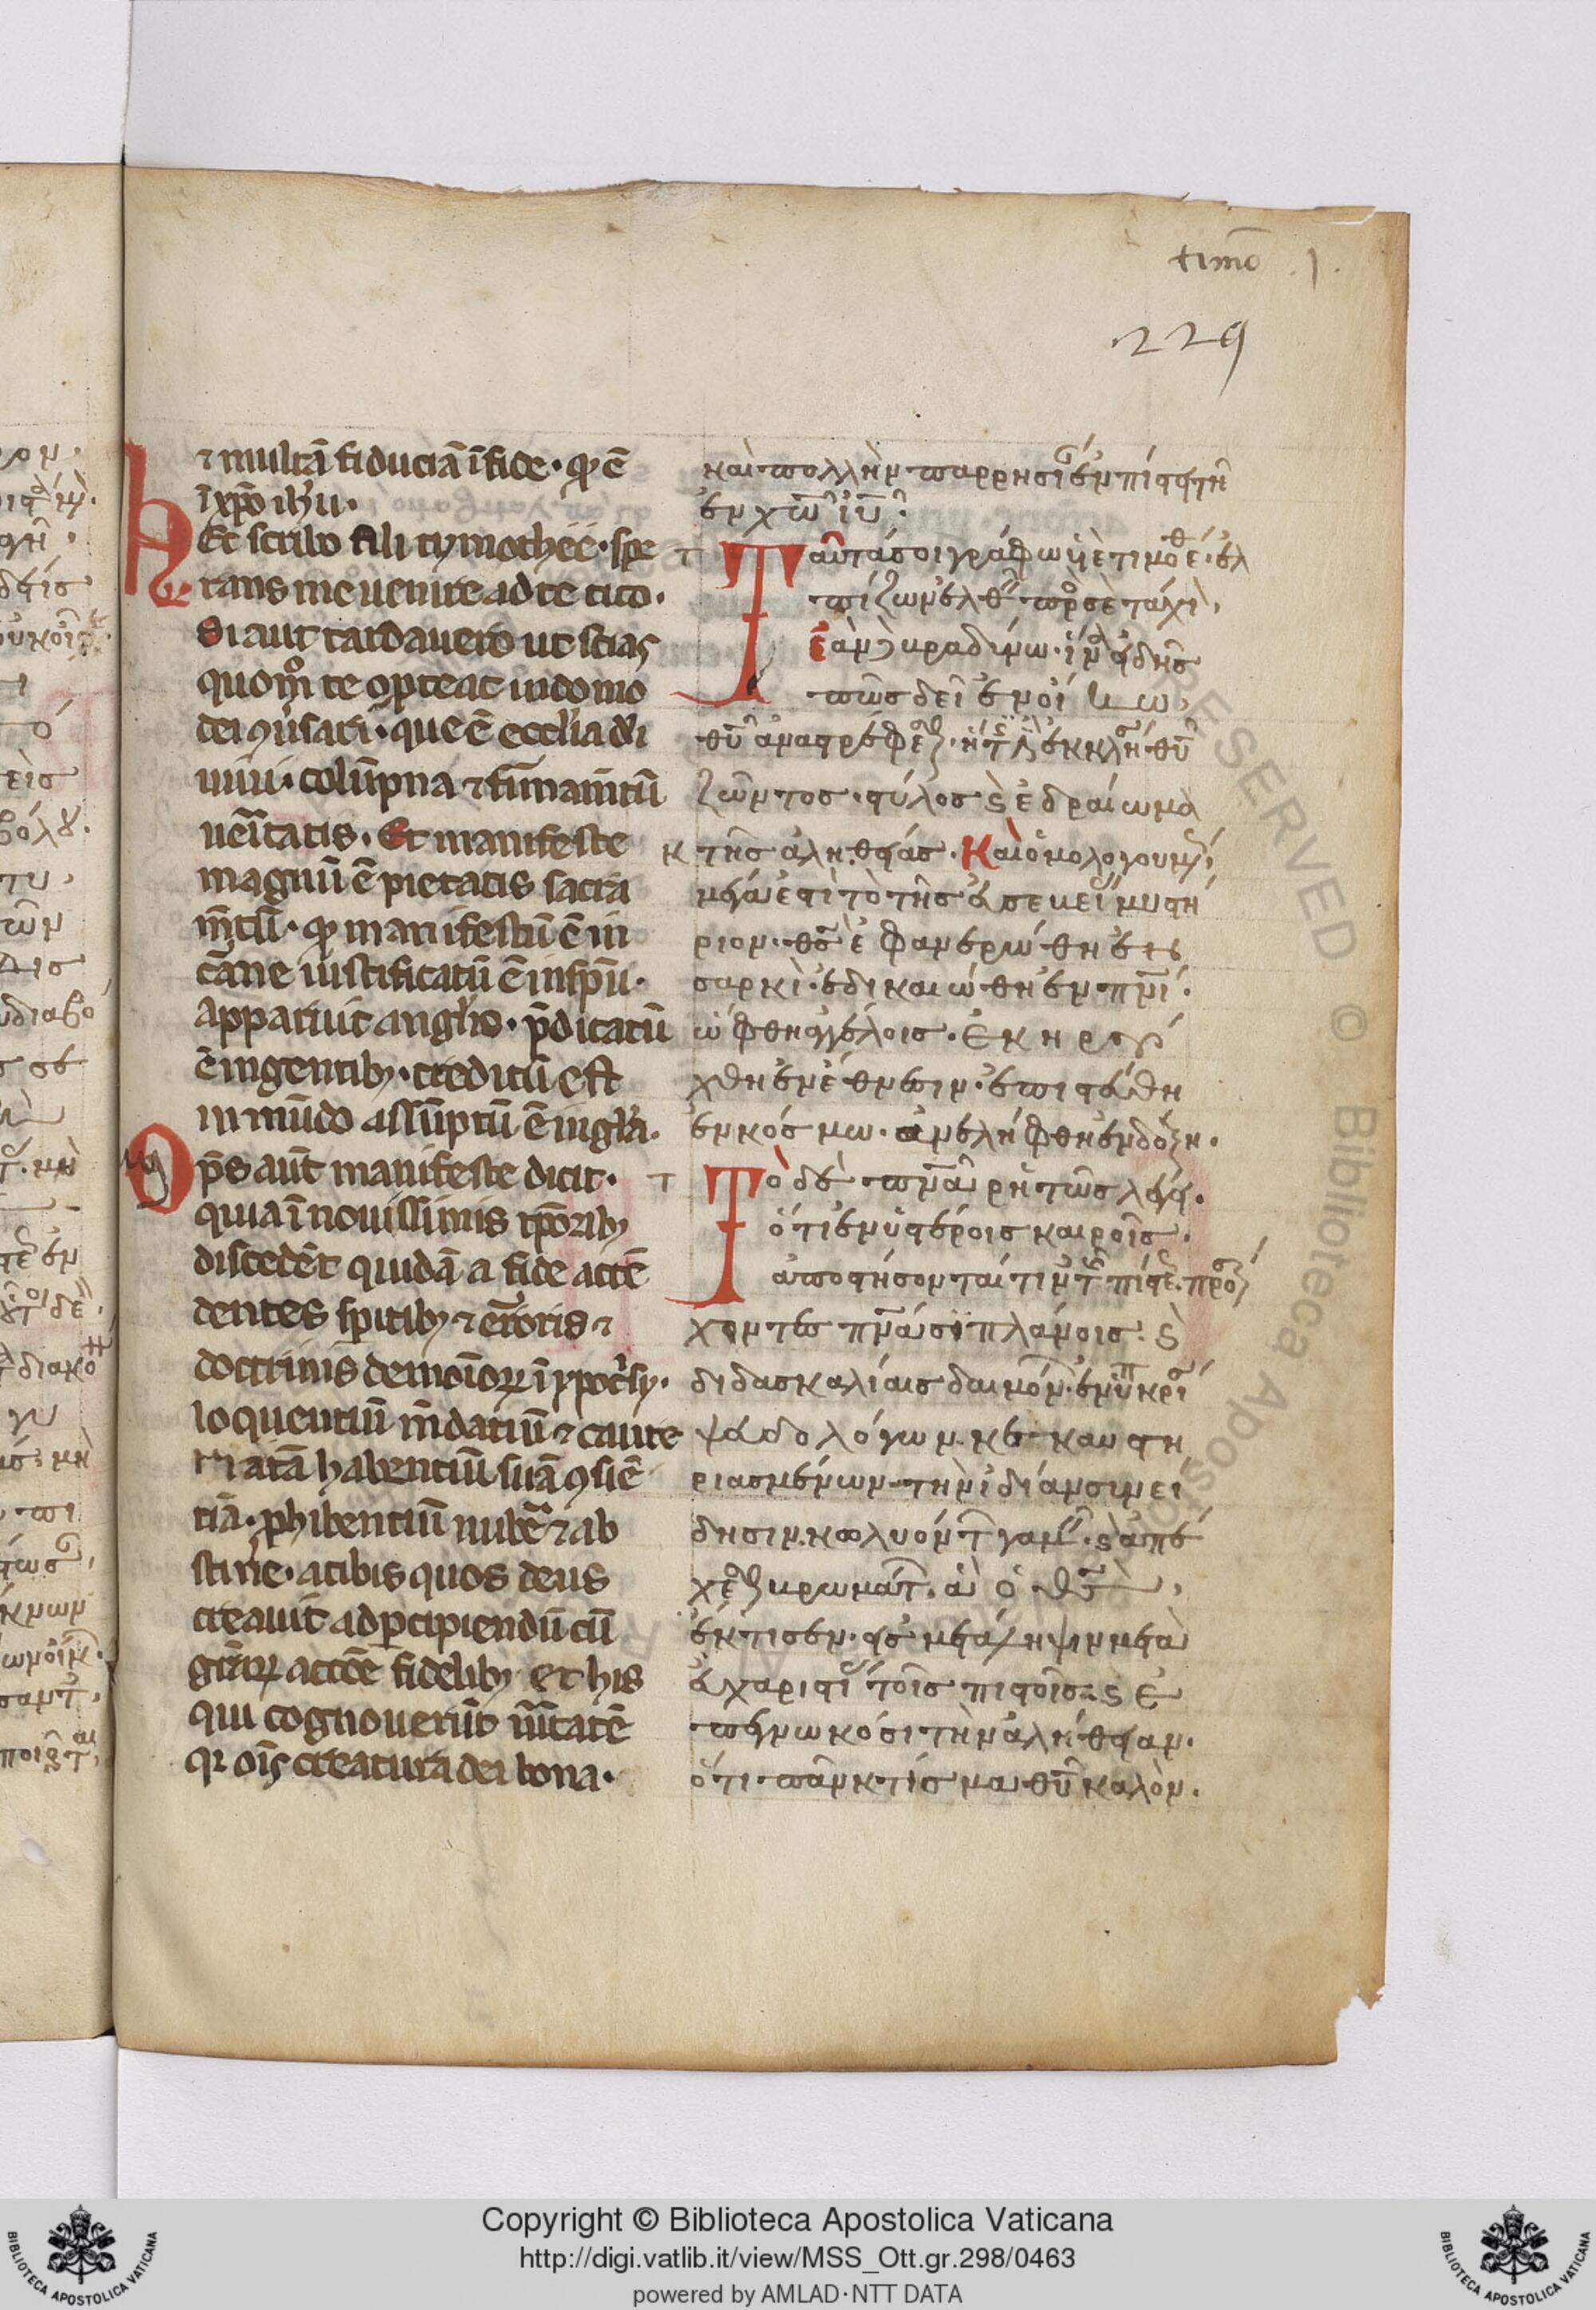 timo .1.
229
⁊ multā fiduciā ī fide · q̄ ē
ī xp̄o ih̄u ·
Hec scribo fili tymothee · spe
rans me uenire ad te cito ·
Si aut̄ tardauero ut scias
quom̊ te op̄teat in domo
dei ꝯu̓sari · que ē eccl̄ia dei
uiui · colūpna ⁊ firmam̄tū
ueritatis · Et manifeste
magnū ē pietatis sacra
m̄tū · q̄ manifestū ē in
carne iustificatū ē in sp̄u ·
apparuit angl̄is · p̄dicatū
ē in gentibꝫ · creditū est
in mūdo assūptū ē in gl̄ia ·
Sp̄s aut̄ manifeste dicit ·
quia ī nouissimis tp̄oribꝫ
discedēt quidā a fide attē
dentes sp̄itibꝫ ⁊ erroris ⁊
doctrinis demoīoꝝ ī ypoc̓sy ·
loquentiū m̄datiū ⁊ caute
riatā habentiū suā ꝯsciē
tiā · ꝓhibentiū nubē ⁊ ab
stin̄e · a cibis quos deus
creauit ad ꝑcipiendū cū
gr̄aꝝ acctōe fidelibꝫ et his
qui cognouerūt ūitatē
qꝛ oīs creatura dei bona ·
καὶ πολλὴν παρρησί ἐν πίστει τῆ
ἐν χῶ ἰῦ ·
τ Ταῦτά σοι γράφω τιμόθε · ἐλ
πίζων ἐλθ πρός σε ταχὺ ,
ἐὰν βραδύνω · ἵν εἰδῆς
πῶς δεῖ ἐν οἴκω ,
θῦ ἀναστρέφεσθ · ἥτ ἐκκλησ θῦ
ζῶντος · στύλος ϛ ἑδραίωμα
κ τῆς ἀληθείας · Καὶ ὁμολογουμ
μέγα ἐστὶ τὸ τῆς εὐσεβεί μυστή
ριον · θσ̄ ἐφανερώθη ἐν
σαρκὶ · ἐδικαιώθη ἐν πνῑ ·
ὤφθη ἀγγέλοις · ἐκηρύ
χθη ἐν ἔθνεσιν · ἐπιστεύθη
ἐν κόσμω · ἀνελήφθη ἐν δόξη ·
τ Τὸ δὲ πνᾱ ῥητῶς λέγει ·
ὅτι ἐν ὑστέροις καιροῖς ·
ἀποστήσονταί τιν τ πίστε · προσ
χοντες πνᾱσι πλάνοις · ϛ
διδασκαλίαις δαιμόν · ἐν ὑποκρίσ
ψευδολόγων · κε καυστη
ριασμένων τὴν ἰδίαν συνεί
δησιν · κωλυόντ γαμ · ϛ ἀπέ
χεσθ βρωμάτ · ἃ ὁ θσ̄ ,
ἔκτισεν · εἰς μετάληψιν μετὰ
εὐχαριστί τοῖς πιστοῖς · ϛ ἐ
πεγνωκόσι τὴν ἀλήθειαν ·
ὅτι πᾶν κτίσμα θῦ καλὸν ·
Copyright © Biblioteca Apostolica Vaticana
http://digi.vatlib.it/view/MSS_Ott.gr.298/0463
powered by AMLAD·NTT DATA